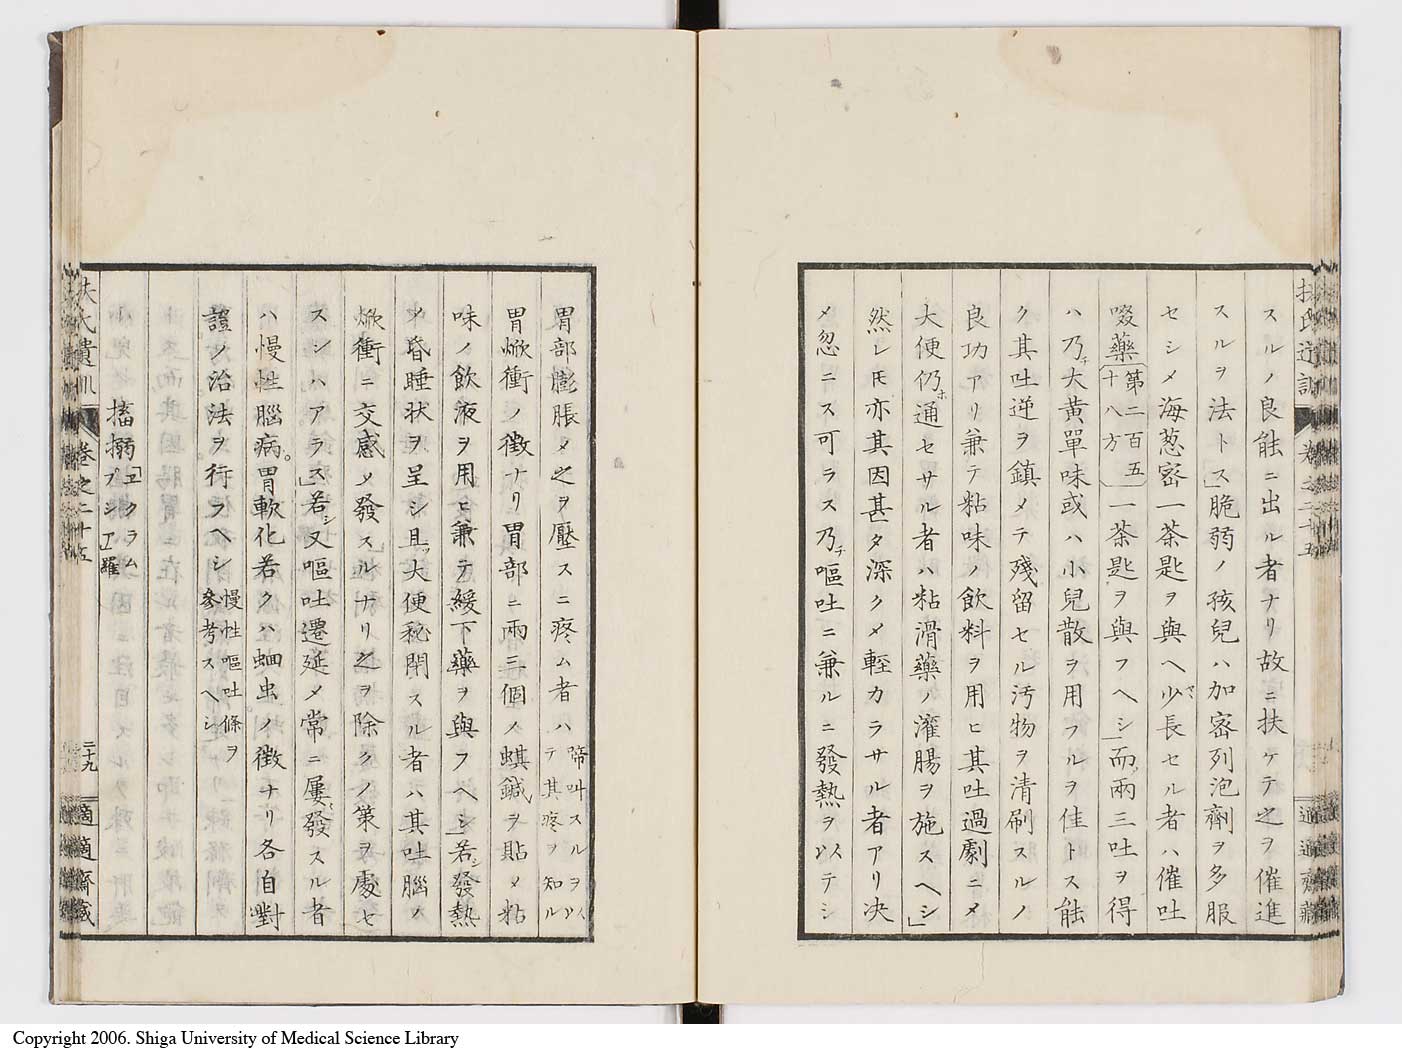 スルノ良能ニ出ル者ナリ故ニ扶ケテ之ヲ催進
スルヲ法トス」脆弱ノ孩兒ハ加密列泡劑ヲ多服
セシメ海葱密一茶匙ヲ與ヘ少シ長セル者ハ催吐
啜藥(第二百五十八方)一茶匙ヲ與フヘシ」而メ兩三吐ヲ得
ハ乃チ大黄單味或ハ小兒散ヲ用フルヲ佳トス能
ク其吐逆ヲ鎮メテ殘留セル汚物ヲ清刷スルノ
良功アリ兼テ粘味ノ飲料ヲ用ヒ其吐過劇ニメ
大便仍ホ通セサル者ハ粘滑藥ノ灌腸ヲ施スヘシ」
然レ𪜈亦其因甚タ深クメ輕カラサル者アリ决
メ忽ニス可ラス乃チ嘔吐ニ兼ルニ發熱ヲ以テシ
胃部膨脹メ之ヲ壓スニ疼ム者ハ啼叫スルヲ以テ其疼ヲ知ル
胃焮衝ノ徴ナリ胃部ニ兩三個ノ蜞鍼ヲ貼メ粘
味ノ飲液ヲ用ヒ兼テ緩下藥ヲ與フヘシ」若シ發熱
メ昏睡状ヲ呈シ且ツ大便秘閉スル者ハ其吐腦ノ
焮衝ニ交感メ發スルナリ之ヲ除クノ策ヲ處セ
スンハアラス」若シ又嘔吐遷延メ常ニ屢發スル者
ハ慢性腦病。胃軟化若クハ蛔虫ノ徴ナリ各自對
證ノ治法ヲ行フヘシ慢性嘔吐條ヲ參考スヘシ
搐搦「エクラムプシー」羅
扶氏遺訓
卷之二十五
二十九
適適齋藏